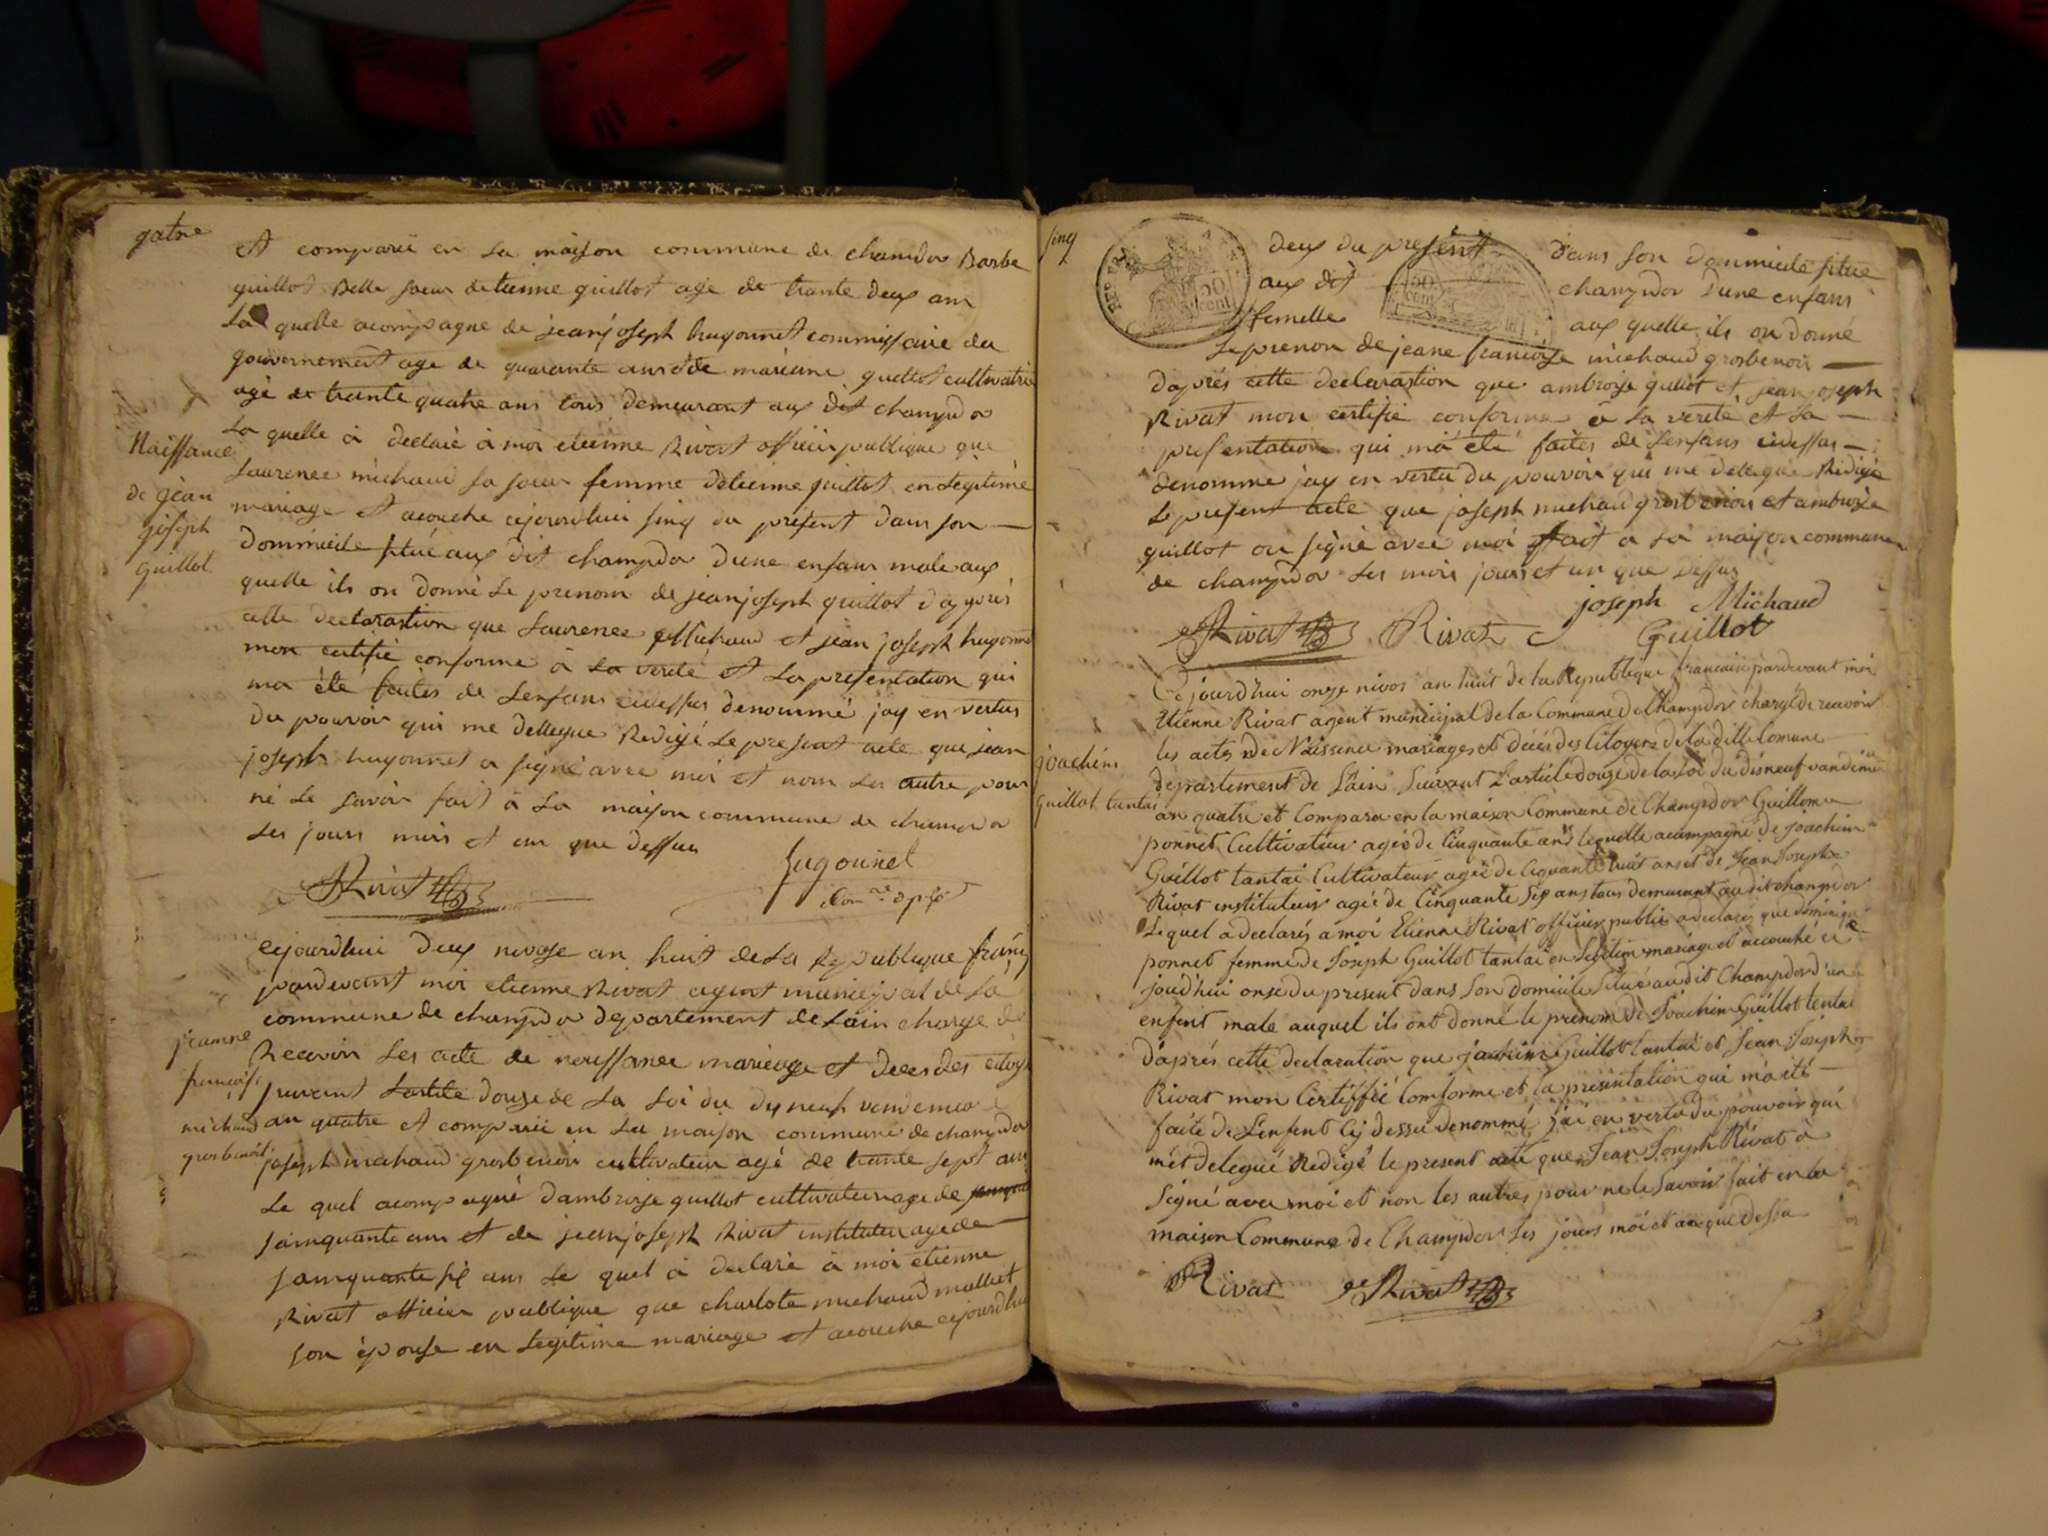 gatre
Et comparu en la maison commune de champdor Barbe
guillot Belle soeur detienne guillot age de trante deux ans
La quelle acompagne de jeanjoseph hugonnet commissaire du
gouvernement age de quarante ans et de mariane guillot cultivatrice
agé de trante quatre ans tous demeurant aux dit champdor
La quelle à declaré à moi etienne Rivat officier publique que
Laurence michaud sa soeur femme detienne guillot en legitime
mariage et acouche cejourdhui sinq du présent dans son
dommicile situé aux dit champdor dune enfans male aux
quelle ils on donné Le prenom de jeanjoseph guillot dapprés
cette declarastion que Laurence Michaud et jean joseph hugonnet
mon certifié conforme à la verité et La presentation qui
ma été faites de Lenfans cidessus denommé jay en vertus
du pouvoir qui me dellegue Redigé Le present acte que jean
joseph hugonnet a signé avec moi et nom Les autre pour
né Le savoir fait à La maison commune de champdor
Les jours mois et an que dessus
Naissance
de jean
joseph
guillot
Rivat
hugonnet
cejourdhui deux nivose an huit de La Republique
pardevant moi etienne Rivat agent municipal de La
commune de champdor departement de Lain charge de
Recevoir Les acte de naissance mariage et deces des citoy
suivant Lartile douze de La Loi du dyneuf vendemiere
an quatre et comparu en La maison commune de champdor
joseph michaud grosbenoi cultivateur agé de trante sept ans
Le quel acompagné dambroise guillot cultivateur age de
sainquante ans et de jeanjoseph Rivat instituteur age de
sainquante six ans Le quel à declaré à moi etienne
Rivat officier publique que charlote michaud mallet
son épouse en Legitime mariage et acouche cejourdhui
jeanne
françoise
michaud
grosbenoit
sinq
REP. FRA.
50 cent
50 cent
deux du present dans son dommicile situé
aux dit champdor dune enfans
femelle aux quelle ils on donné
Le prenon de jeane francoise michaud grosbenoi
daprés cette declarastion que ambroise guillot et jean joseph
Rivat mon certifié conforme à La verité et La
presentation qui ma été faites de Lenfans cidessus
denommé jay en vertu du pouvoir qui me delegue Redigé
Le present acte que joseph michaud grosbenoi et ambroise
guillot on signé avec moi fait a La maison commune
de champdor Les mois jours et an que dessus
joseph Michaud
Rivat Rivat Guillot
Cejourd'hui onze nivos an huit de la Republique francaise pardevant moi
Etienne Rivat agent municipal de la Commune de Champdor chargé de recevoir
les actes de Naissence mariages et décés des Citoyens de la ditte Comune
departement de L'ain Suivant L'article douze de la Loi du disneuf vandemiere
an quatre et Comparu en la maison Commune de Champdor Guillome
ponnet Cultivateur agée de Cinquante ans lequelle acompagné de joachim
Guillot tantai Cultivateur agée de Ciquante huit ans et de Jean Joseph
Rivat instituteur agée de Cinquante Six ans tous demeurant au dit champdor
Lequel a declarés a moi Etienne Rivat officier public a declarés que dominique
ponnet femme de Joseph Guillot tantai en Legitim mariage et accouché ce
joud'hui onse du present dans Son domicile Situé audit Champdor d'un
enfent male auquel ils ont donné le prenom de Joachim Guillot tentai
d'aprés cette declaration que joachim Guillot tantai et Jean Joseph
Rivat mon Certiffié Comforme et la présentation qui m'a été
faite de L'enfent Cy dessu denommé j'ai en vertu du pouvoir qui
mét delegué Redigé le present acte que Jean Joseph Rivat à
Signé avec moi et non les autres pour ne le Savoir fait en la
maison Commune de Champdor Les jours moi et an que dessu
joachim
Guillot tantai
Rivat Rivat